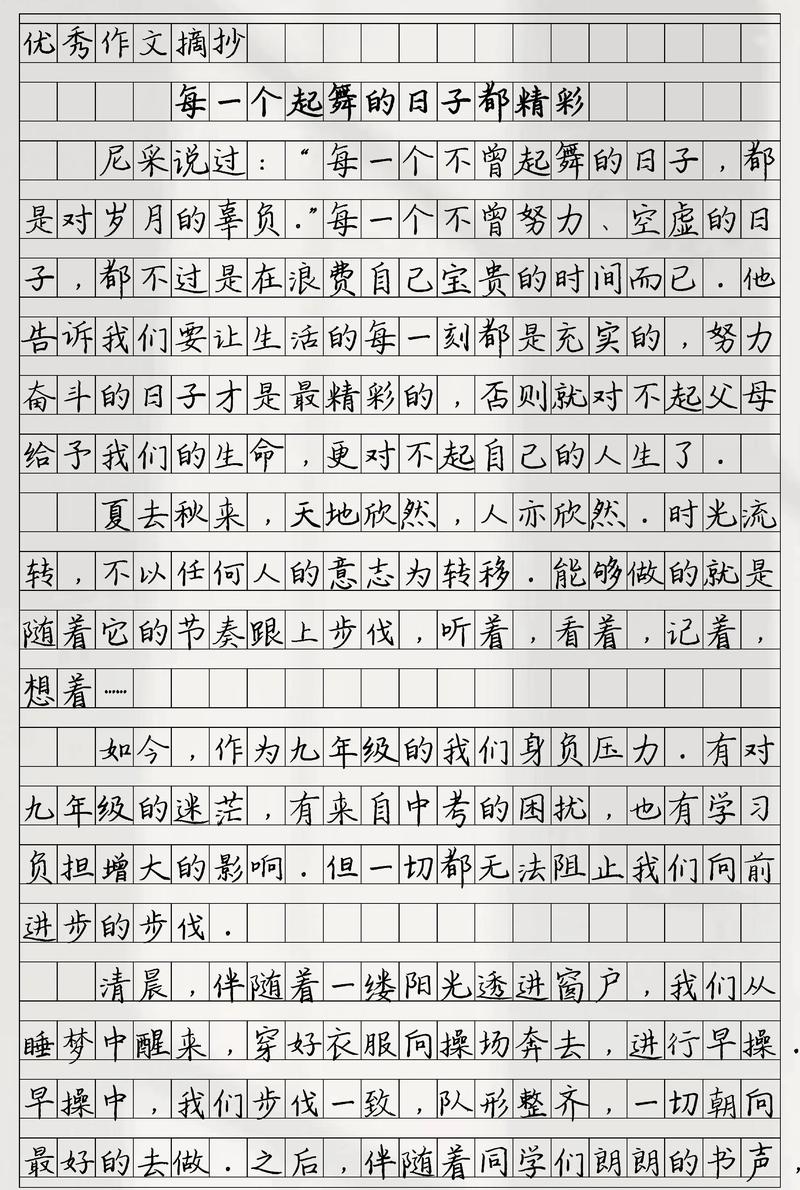 优秀作文摘抄
每一个起舞的日子都精彩
尼采说过：“每一个不曾起舞的日子，都
是对岁月的辜负.”每一个不曾努力、空虚的日
子，都不过是在浪费自己宝贵的时间而已.他
告诉我们要让生活的每一刻都是充实的，努力
奋斗的日子才是最精彩的，否则就对不起父母
给予我们的生命，更对不起自己的人生了.
夏去秋来，天地欣然，人亦欣然.时光流
转，不以任何人的意志为转移.能够做的就是
随着它的节奏跟上步伐，听着，看着，记着，
想着……
如今，作为九年级的我们身负压力.有对
九年级的迷茫，有来自中考的困扰，也有学习
负担增大的影响.但一切都无法阻止我们向前
进步的步伐.
清晨，伴随着一缕阳光透进窗户，我们从
睡梦中醒来，穿好衣服向操场奔去，进行早操.
早操中，我们步伐一致，队形整齐，一切朝向
最好的去做.之后，伴随着同学们朗朗的书声，